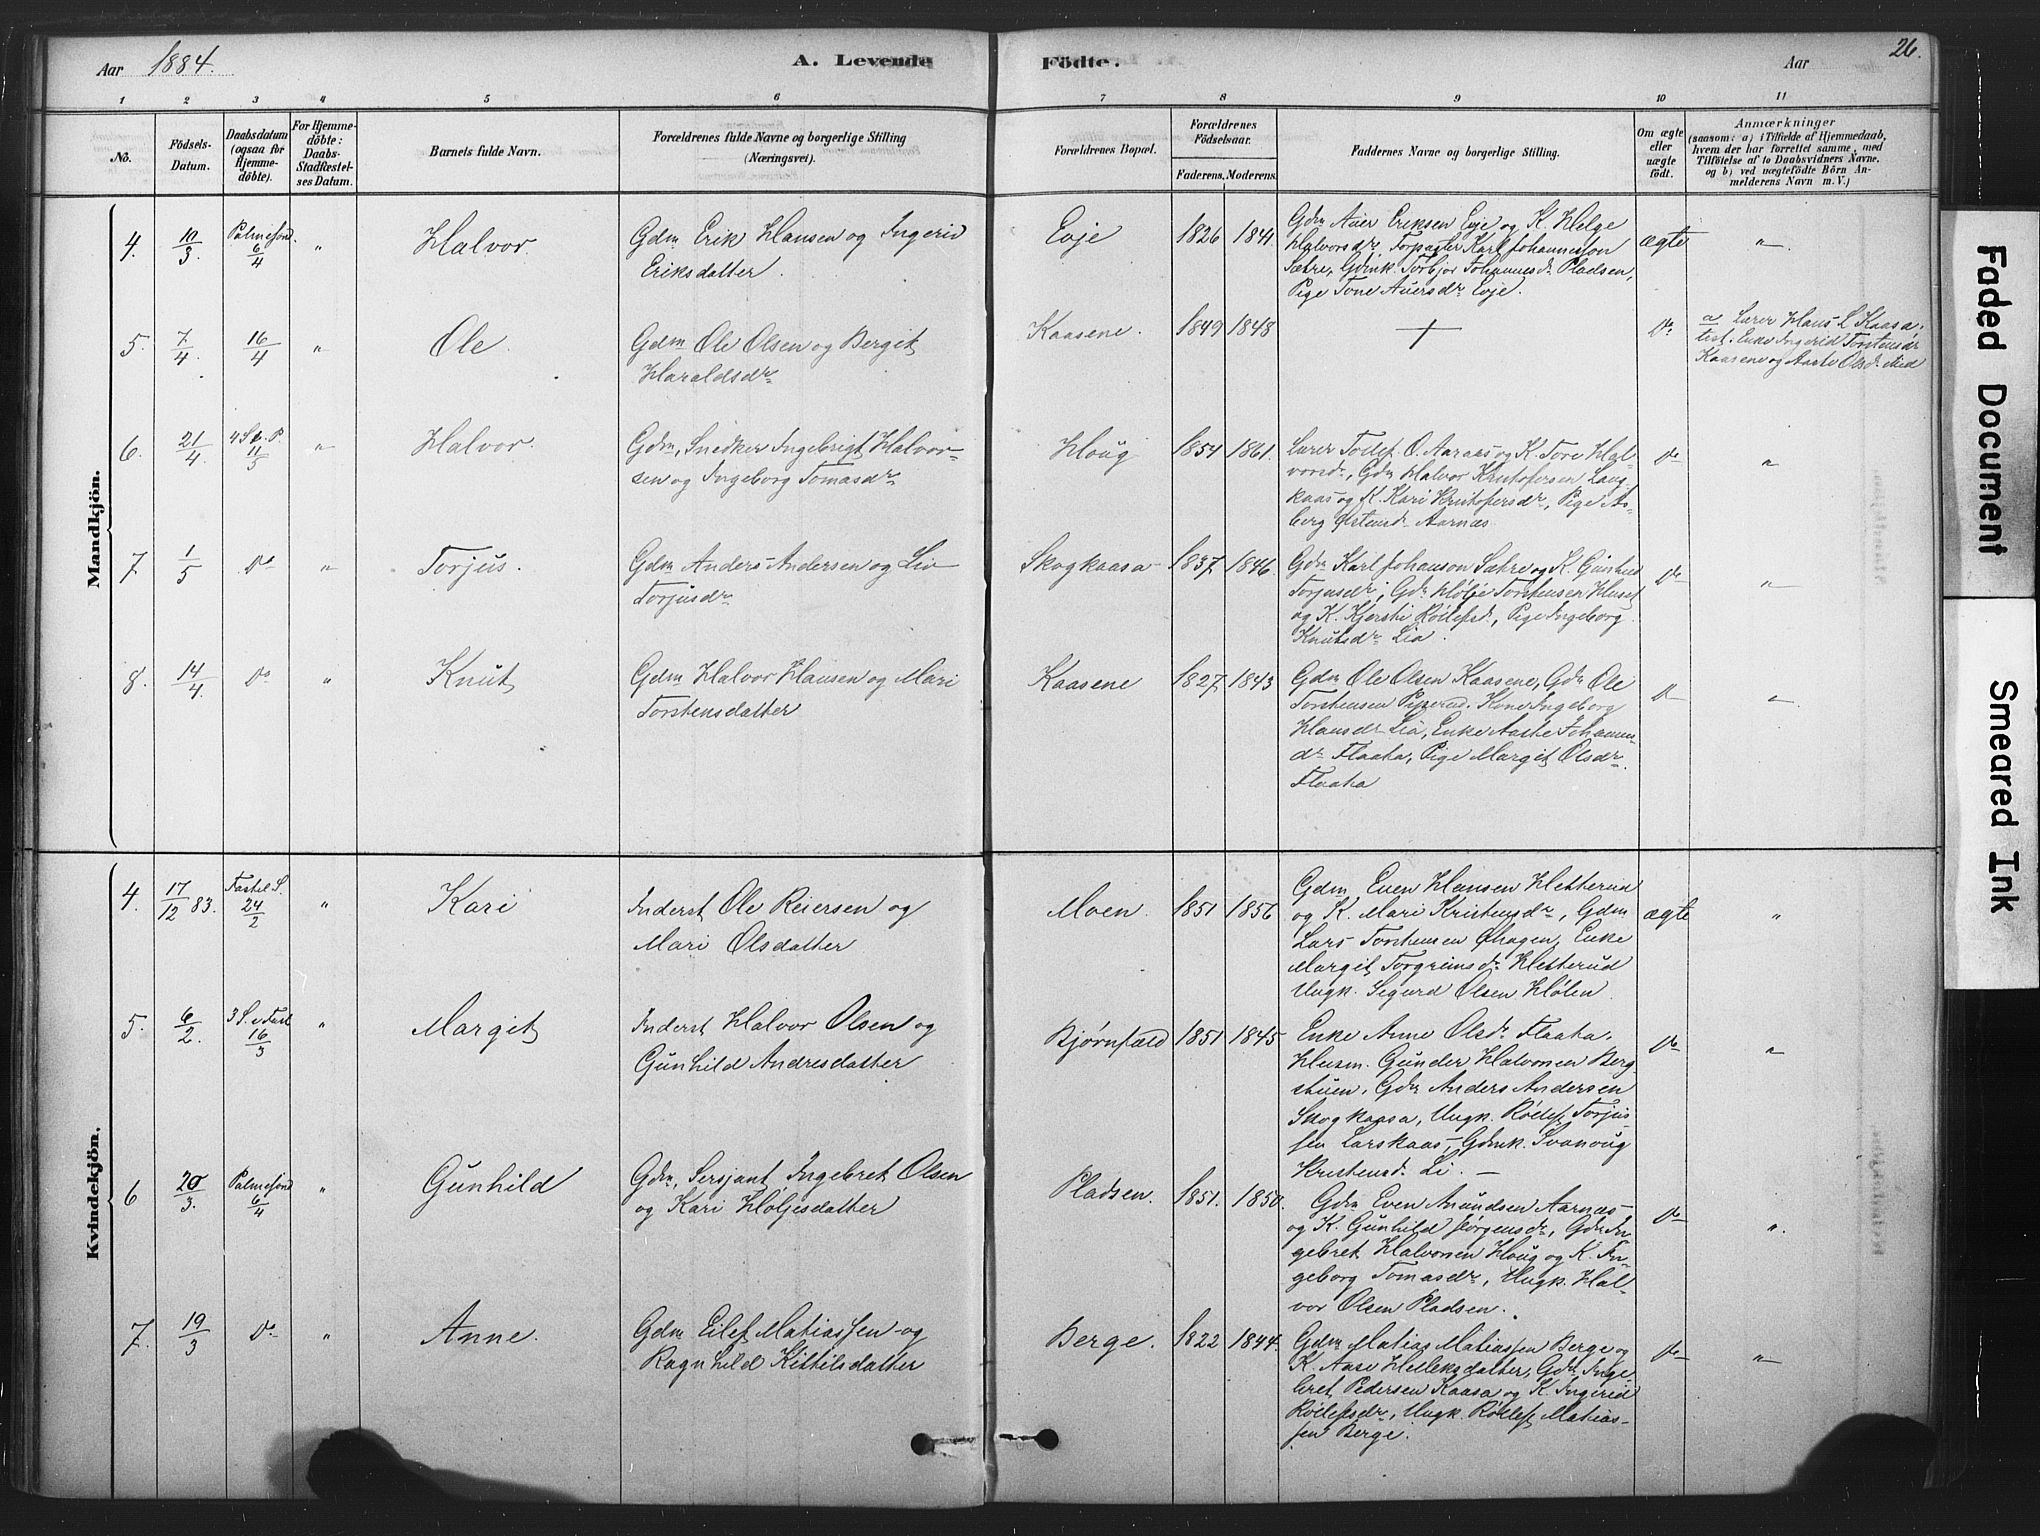 Aar 1884.
A. Levende Födte.
Aar
26.
1 2 3 4 5 6 7 8 9 10 11
No.
Födsels-Datum.
Daabsdatum (ogsaa for Hjemmedöbte).
For Hjemmedöbte: Daabs-Stadfæstelses Datum.
Barnets fulde Navn.
Forældrenes fulde Navne og borgerlige Stilling (Næringsvei).
Forældrenes Bopæl.
Forældrenes Födselsaar.
Faderens. Moderens.
Faddernes Navne og borgerlige Stilling.
Om ægte eller uægte födt.
Anmærkninger
(saasom: a) i Tilfælde af Hjemmedaab, hvem der har forrettet samme, med Tilföielse af to Daabsvidners Navne. og b) ved uægtefödte Börn Anmelderens Navn m. V.)
Mandkjön.
4. 10/3 Palmesønd. 6/4 " Halvor. Gdm Erik Hansen og Ingerid
Eriksdatter.
Evje 1826 1841. Gdm Auer Eriksen Evje og K. Helge
Halvorsdr Forpagter Karl Johannesson
Sætre, Gdmk. Torbjor Johannesdr Pladsen,
Pige Tone Auersdr Evje.
ægte "
5. 7/4. 16/4 " Ole. Gdm Ole Olsen og Bergit
Haraldsdr
Kaasene. 1849 1848 + Do
a. Lærer Hans L. Kaasa,
test. Enke Ingerid Torstensdr
Kaasene og Aaste Olsdr
6. 21/4. 4 S. e. P. 11/5 " Halvor. Gdm, Snedker Ingebrigt Halvor-
sen og Ingeborg Tomasdr
Houg 1854 1861. Lærer Tollef O. Aaraas og K. Tore Hal-
vorsdr, Gdm Halvor Kristofersen Laug-
kaas og K. Kari Kristofersdr, Pige As-
berg Østensdr Aarnæs
Do "
7 1/5 Do " Torjus. Gdm Anders Andersen og Liv
Torjusdr
Skogkaasa 1837. 1846. Gdm Karl Johanson Sætre og K. Gunhild
Torjusdr, Gdm Hølje Torstensen Huset
og K. Kjersti Røilefsdr, Pige Ingeborg
Knutsdr Lia.
Do "
8. 14/4. Do " Knut Gdm Halvor Hansen og Mari
Torstensdatter
Kaasene 1827. 1843 Gdm Ole Olsen Kaasene, Gdm Ole
Torstensen Piperud. Kone Ingeborg
Hansdr Lia, Enke Aaste Johannes-
dr Flaata, Pige Margit Olsdr
Flaata
Do "
Kvindekjön.
4. 17/12 83. Fastel. S. 24/2 " Kari Inderst Ole Reiersen og
Mari Olsdatter
Moen. 1851 1856 Gdm Even Hansen Hetterud
og K. Mari Kristensdr, Gdm
Lars Torstensen Øhagen, Enke
Margit Torgrimsdr Hetterud
Ungk. Sigurd Olsen Hølen.
ægte "
5. 6/2. 3 S. i Fast 16/3 " Margit Inderst Halvor Olsen og
Gunhild Andresdatter
Bjørnfæld 1851 1845 Enke Anne Olsdr Flaata.
Husm. Gunder Halvorsen Berg-
stuen, Gdm Anders Andersen
Skogkaasa, Ungk. Røilef Torjus-
sen Larskaas, Gdmk. Svanoug
Kristensdr Li. —
Do "
6 20/3. Palmesønd 6/4 " Gunhild Gdm, Sersjant Ingebret Olsen
og Kari Høljesdatter
Pladsen. 1851. 1850. Gdm Even Amundsen Aarnæs
og K. Gunhild Jørgensdr, Gdm In-
gebret Halvorsen Houg og K. In-
geborg Tomasdr, Ungk. Hal-
vor Olsen Pladsen.
Do "
7. 19/3 Do " Anne. Gdm Eilef Matiassen og
Ragnhild Kittilsdatter
Berge. 1822 1844. Gdm Matias Matiassen Berge og
K. Aase Helleksdatter, Gdm Inge-
bret Pedersen Kaasa og K. Ingerid
Røilefsdr, Ungk. Røilef Matias-
sen Berge.
Do "
Faded Document
Smeared Ink